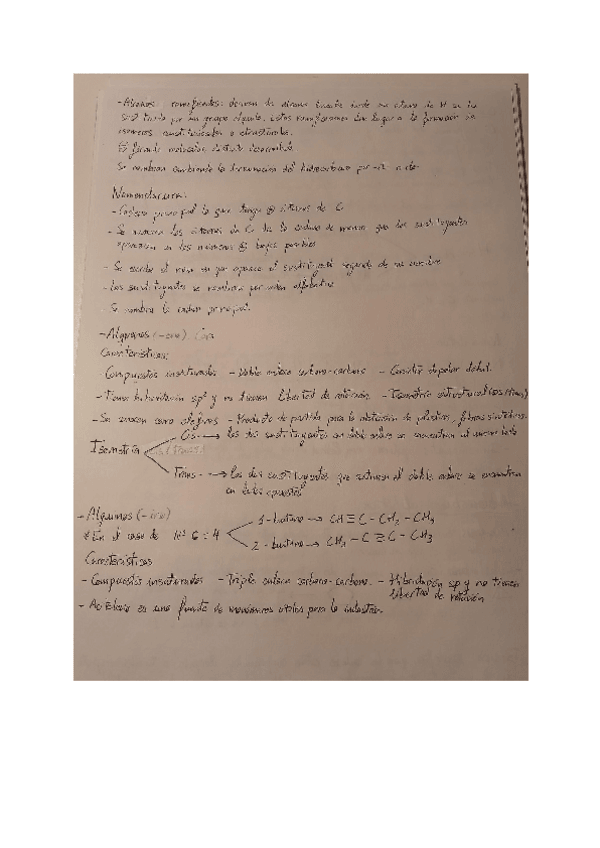 - Alcanos ramificados: derivan de alcanos lineales donde un átomo de H se ha
sustituido por un grupo alquilo. Estas ramificaciones dan lugar a la formación de
isómeros constitucionales o estructurales.
fórmula molecular distinta
Se nombran cambiando la terminación del hidrocarburo por -il o -ilo
Nomenclatura:
- Cadena principal la que tenga átomos de C
- Se numeran los átomos de C de la cadena de manera que los sustituyentes
aparezcan en los números bajos posibles
- Se escribe el número en que aparece el sustituyente seguido de su nombre
- Los sustituyentes se nombran por orden alfabético
- Se nombra la cadena principal.
- Alquenos (-eno)
Características:
Compuestos insaturados - Doble enlace carbono-carbono - Carácter dipolar débil.
- Tienen hibridación sp² y no tienen libertad de rotación - Isomería estructural (cis/trans)
- Se conocen como olefinas - Producto de partida para la obtención de plásticos, fibras sintéticas.
Cis → los dos sustituyentes en doble enlace se encuentran al mismo lado
Isomería
Trans → los dos sustituyentes que rodean el doble enlace se encuentran
en lados opuestos
- Alquinos (-ino)
* En el caso de Nº C = 4
1-butino → CH ≡ C - CH₂ - CH₃
2-butino → CH₃ - C ≡ C - CH₃
Características
- Compuestos insaturados - Triple enlace carbono-carbono. - Hibridación sp y no tienen
libertad de rotación
- Acetileno es una fuente de monómeros útiles para la industria.